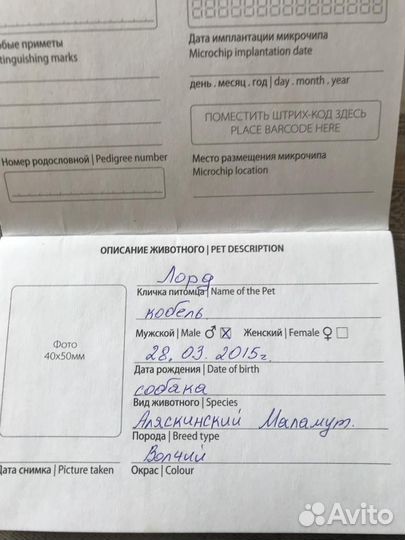 обые приметы
tinguishing marks
Дата имплантации микрочипа
Microchip implantation date
день . месяц . год | day . month . year
ПОМЕСТИТЬ ШТРИХ-КОД ЗДЕСЬ
PLACE BARCODE HERE
Номер родословной | Pedigree number
Место размещения микрочипа
Microchip location
ОПИСАНИЕ ЖИВОТНОГО | PET DESCRIPTION
Лорд
Кличка питомца | Name of the Pet
кобель
Мужской | Male ♂ ☒ Женский | Female ♀ ☐
Фото
40х50мм
28.03.2015г.
Дата рождения | Date of birth
собака
Вид животного | Species
Аляскинский Маламут.
Порода | Breed type
Волчий
Дата снимка | Picture taken
Окрас | Colour
Avito